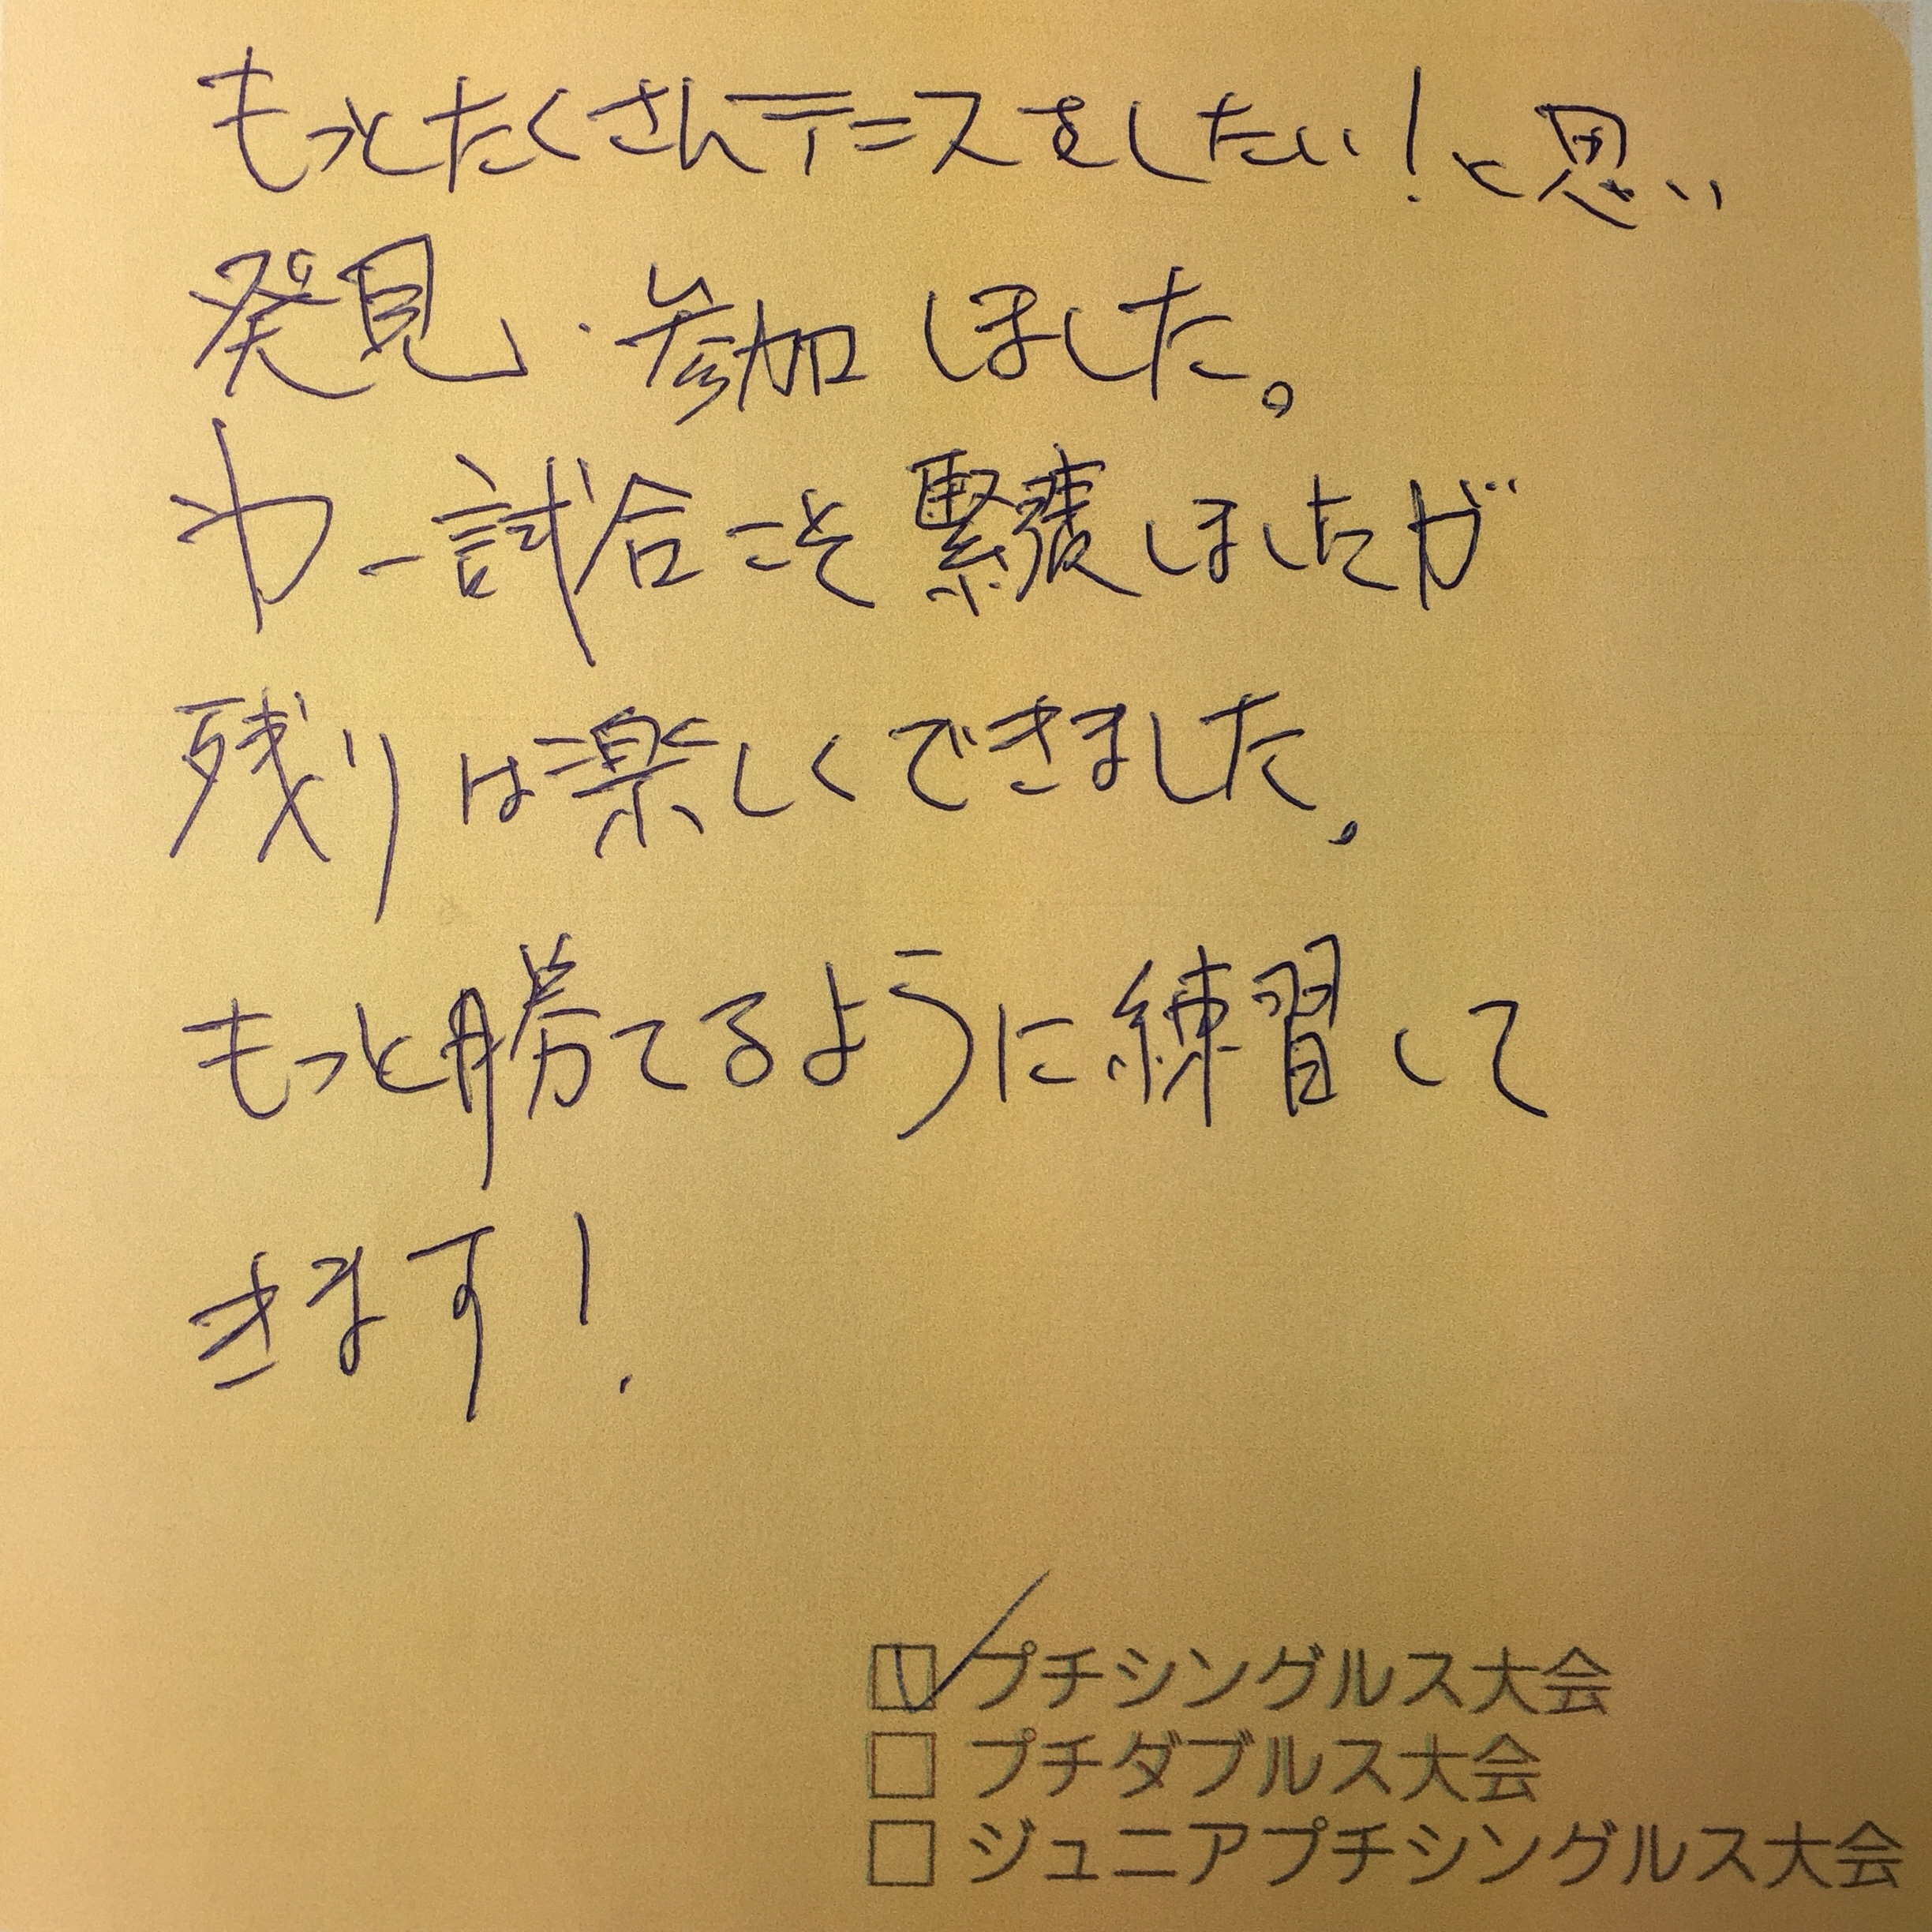 もっとたくさんテニスをしたい！と思い
発見し、参加しました。
カー試合こそ緊張しましたが
残りは楽しくできました。
もっと勝てるように練習して
きます！
☑ プチシングルス大会
☐ プチダブルス大会
☐ ジュニアプチシングルス大会